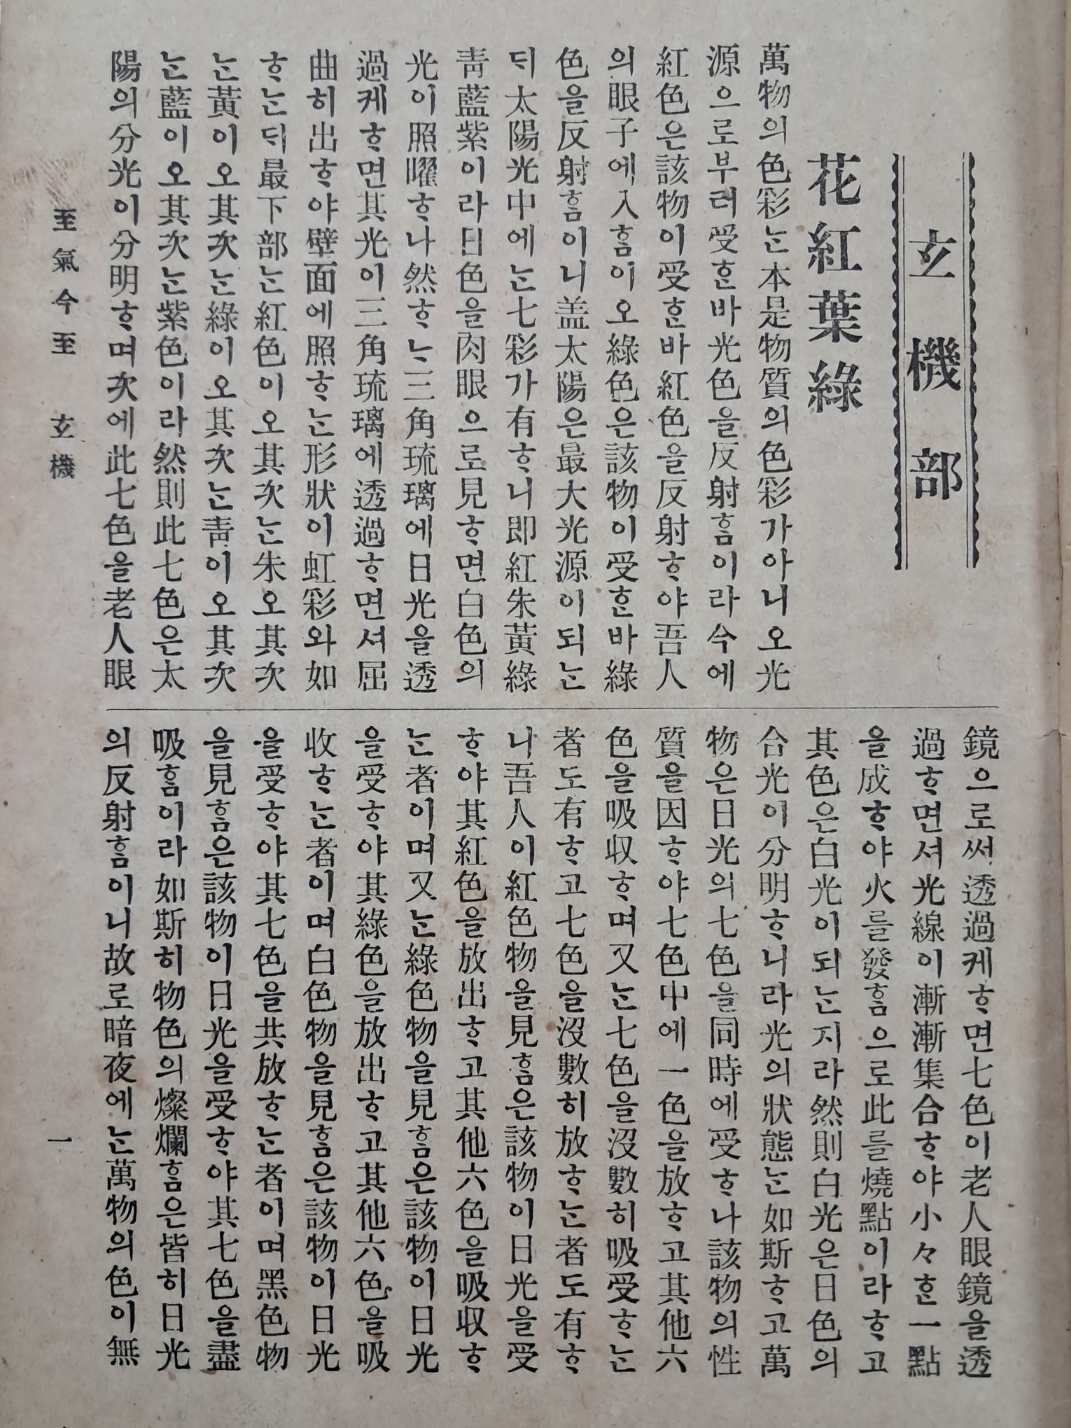 玄機部
花紅葉綠
萬物의色彩ᄂᆞᆫ本是物質의色彩가아니오光
源으로부터受ᄒᆞᆫ바光色을反射ᄒᆞᆷ이라今에
紅色은該物이受ᄒᆞᆫ바紅色을反射ᄒᆞ야吾人
의眼子에入ᄒᆞᆷ이오綠色은該物이受ᄒᆞᆫ바綠
色을反射ᄒᆞᆷ이니盖太陽은最大光源이되ᄂᆞᆫ
ᄃᆡ太陽光中에ᄂᆞᆫ七彩가有ᄒᆞ니即紅朱黃綠
靑藍紫이라日色을肉眼으로見ᄒᆞ면白色의
光이照曜ᄒᆞ나然ᄒᆞᄂᆞ三角琉璃에日光을透
過케ᄒᆞ면其光이三角琉璃에透過ᄒᆞ면셔屈
曲히出ᄒᆞ야壁面에照ᄒᆞᄂᆞᆫ形狀이虹彩와如
ᄒᆞᄂᆞᆫᄃᆡ最下部ᄂᆞᆫ紅色이오其次ᄂᆞᆫ朱오其次
ᄂᆞᆫ黃이오其次ᄂᆞᆫ綠이오其次ᄂᆞᆫ靑이오其次
ᄂᆞᆫ藍이오其次ᄂᆞᆫ紫色이라然則此七色은太
陽의分光이分明ᄒᆞ며次에此七色을老人眼
鏡으로써透過케ᄒᆞ면七色이老人眼鏡을透
過ᄒᆞ면셔光線이漸漸集合ᄒᆞ야小々ᄒᆞᆫ一點
을成ᄒᆞ야火를發ᄒᆞᆷ으로此를燒點이라ᄒᆞ고
其色은白光이되ᄂᆞᆫ지라然則白光은日色의
合光이分明ᄒᆞ니라光의狀態ᄂᆞᆫ如斯ᄒᆞ고萬
物은日光의七色을同時에受ᄒᆞ나該物의性
質을因ᄒᆞ야七色中에一色을放ᄒᆞ고其他六
色을吸収ᄒᆞ며又ᄂᆞᆫ七色을沒數히吸受ᄒᆞᄂᆞᆫ
者도有ᄒᆞ고七色을沒數히放ᄒᆞᄂᆞᆫ者도有ᄒᆞ
니吾人이紅色物을見ᄒᆞᆷ은該物이日光을受
ᄒᆞ야其紅色을放出ᄒᆞ고其他六色을吸収ᄒᆞ
ᄂᆞᆫ者이며又ᄂᆞᆫ綠色物을見ᄒᆞᆷ은該物이日光
을受ᄒᆞ야其綠色을放出ᄒᆞ고其他六色을吸
收ᄒᆞᄂᆞᆫ者이며白色物을見ᄒᆞᆷ은該物이日光
을受ᄒᆞ야其七色을共放ᄒᆞᄂᆞᆫ者이며黑色物
을見ᄒᆞᆷ은該物이日光을受ᄒᆞ야其七色을盡
吸ᄒᆞᆷ이라如斯히物色의燦爛ᄒᆞᆷ은皆히日光
의反射ᄒᆞᆷ이니故로暗夜에ᄂᆞᆫ萬物의色이無
至氣今至 玄機
一